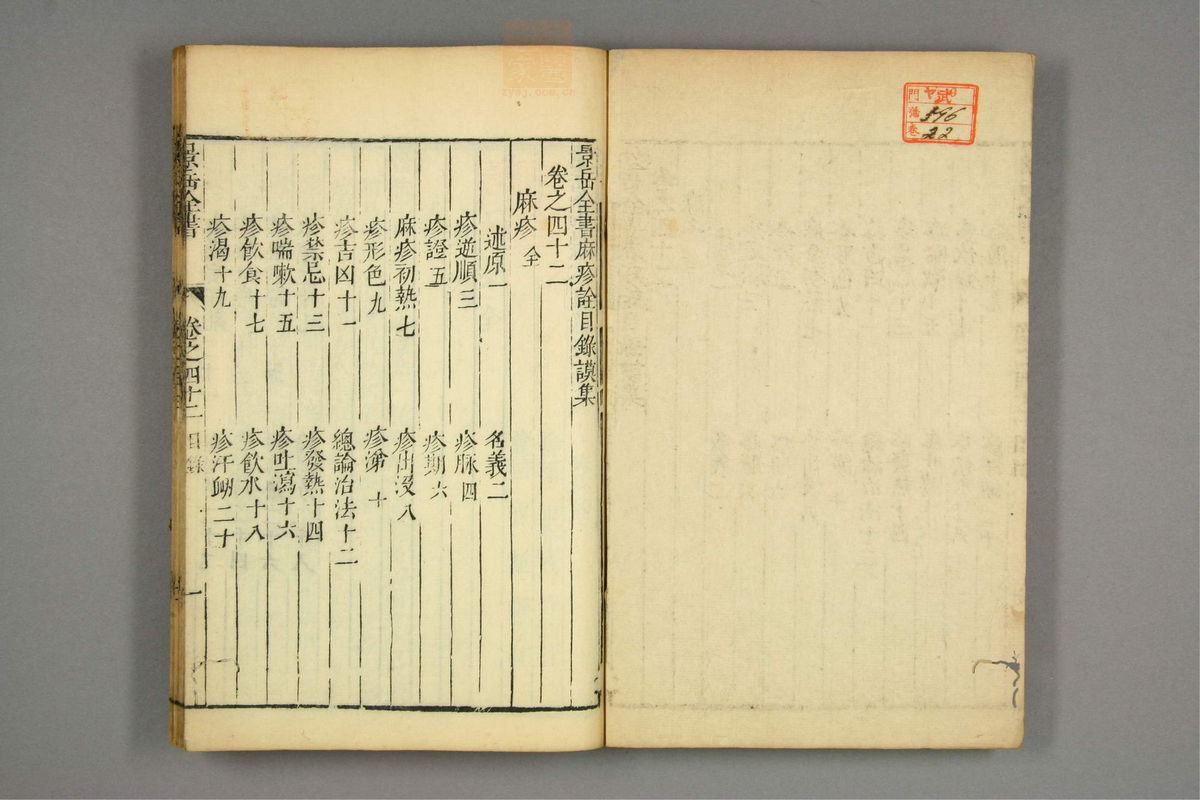 景岳全書麻疹詮目錄謨集
卷之四十二
麻疹 全
述原一 名義二
疹逆順三 疹脉四
疹證五 疹期六
麻疹初熱七 疹出沒八
疹形色九 疹渧十
疹吉凶十一 總論治法十二
疹禁忌十三 疹發熱十四
疹喘嗽十五 疹吐瀉十六
疹飲食十七 疹飲水十八
疹渴十九 疹汗衄二十
景岳全書 卷之四十二 目錄 一
門 武
號 396
卷 22
zysj.com.cn